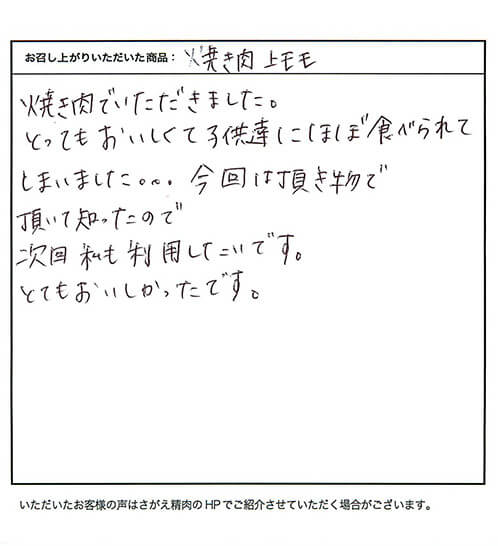 お召し上がりいただいた商品： 焼き肉 上モモ
焼き肉でいただきました。
とってもおいしくて子供達にほぼ食べられて
しまいました。～。今回は頂き物で
頂いて知ったので
次回私も利用したいです。
とてもおいしかったです。
いただいたお客様の声はさがえ精肉のHPでご紹介させていただく場合がございます。